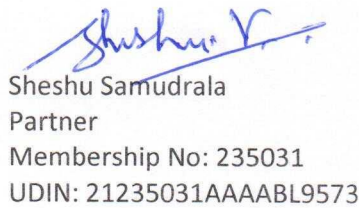 Sheshu. V. :
Sheshu Samudrala
Partner
Membership No: 235031
UDIN: 21235031AAAABL9573